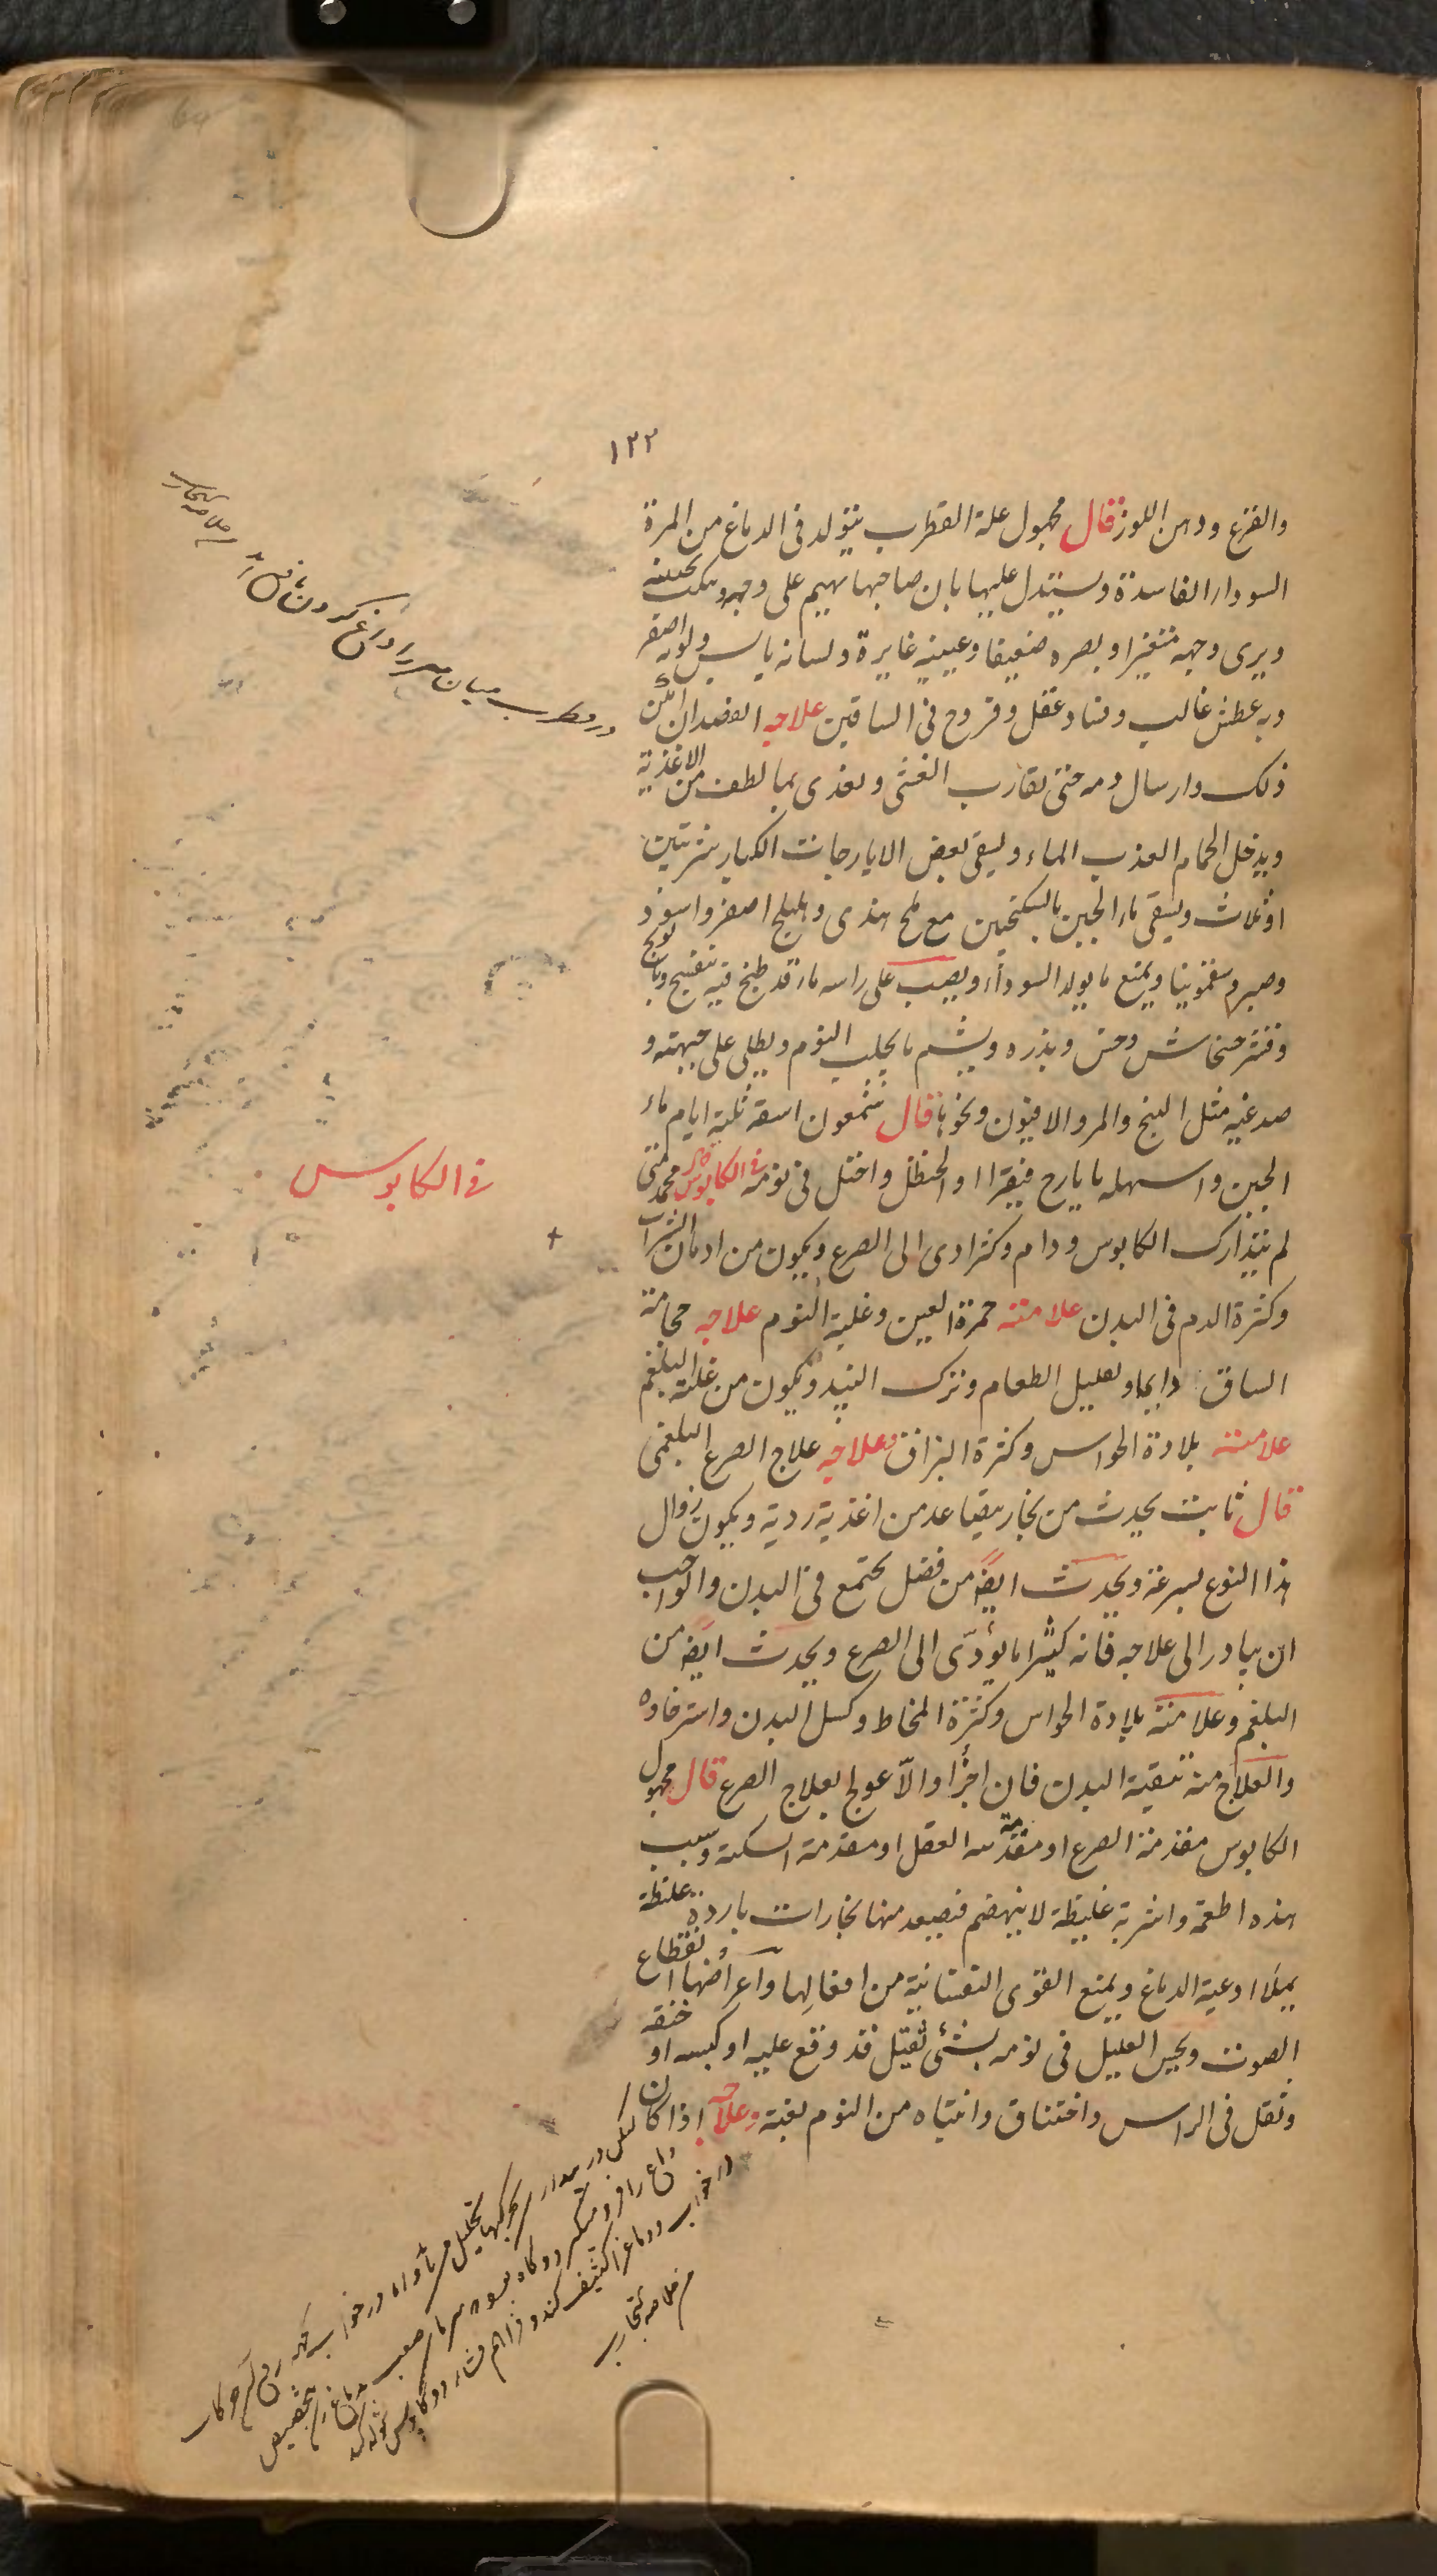 ١٢٢
والقرع ودهن اللوز قال مجهول علة القطرب يتولد فى الدماغ من المرة
السوداء الفاسدة ويستدل عليها بان صاحبها يهيم على وجهه
ويرى وجهه متغيرا وبصره ضعيفا وعينيه غايرة ولسانه يابس ولونه اصفر
وبه عطش غالب وفساد عقل وقروح فى الساقين علاجه الفصد ان امكن
ذلك وارسال دمه حتى يقارب الغشى ويغذى بما لطف من الاغذية
ويدخل الحمام العذب الماء ويسقى بعض الايارجات الكبار شربتين
او ثلاث ويسقى ماء الجبن بالسكنجبين مع ملح هندى وهليلج اصفر واسود
وصبر وسقمونيا ويمنع ما يولد السوداء ويصب على راسه ماء قد طبخ فيه بنفسج وبابونج
وقشر خشخاش وخس وبذره ويشم ما يجلب النوم ويطلى على جبهته و
صدغيه مثل البنج والمر والافيون ونحوها قال شمعون اسقه ثلثة ايام ماء
الجبن واسهله بايارج فيقرا او الحنظل واختل فى نومه فى الكابوس قال محمد متى
فى الكابوس
لم يتدارك الكابوس ودام وكثر ادى الى الصرع ويكون من ادمان الشراب
وكثرة الدم فى البدن علامته حمرة العين وغلبة النوم علاجه حجامة
الساق دايما وتقليل الطعام وترك النبيذ ويكون من غلبة البلغم
علامته بلادة الحواس وكثرة البزاق وعلاجه علاج الصرع البلغمى
قال ثابت يحدث من بخار يتصاعد من اغذية ردية ويكون زوال
هذا النوع بسرعة ويحدث ايضا من فضل يجتمع فى البدن والواجب
ان يبادر الى علاجه فانه كثيرا ما يؤدّى الى الصرع ويحدث ايضا من
البلغم وعلامته بلادة الحواس وكثرة المخاط وكسل البدن واسترخاوه
والعلاج منه تنقية البدن فان اجزأ والّا عولج بعلاج الصرع قال مجهول
الكابوس مقدمة الصرع او مقدمة العقل او مقدمة السكتة وسبب
هذه اطعمة واشربة غليظة لا ينهضم فيصعد منها بخارات باردة غليظة
يملأ اوعية الدماغ ويمنع القوى النفسانية من افعالها واعراضها انقطاع
الصوت ويحس العليل فى نومه بشئ ثقيل قد وقع عليه او كبسه او خنقه
وثقل فى الراس واختناق وانتباه من النوم بغتة وعلاجه اذا كان